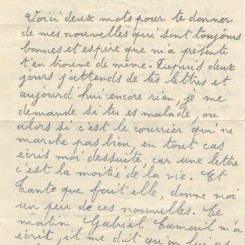 Voici deux mots pour te donner
de mes nouvelles qui sont toujours
bonnes et espère que m'a présente
t'en trouve de même. Depuis deux
jours j'attends de tes lettres et
aujourd hui encore rien, je me
demande si tu es malade, ou
alors si c'est le courrier qui ne
marche pas bien, en tout cas
écris moi desuite, car une lettre
c'est la moitié de la vie. Et
tante que fait elle, donne moi
un peu de ces nouvelles. Ce
matin Gabriel m'a
écrit, il me dit qu'on